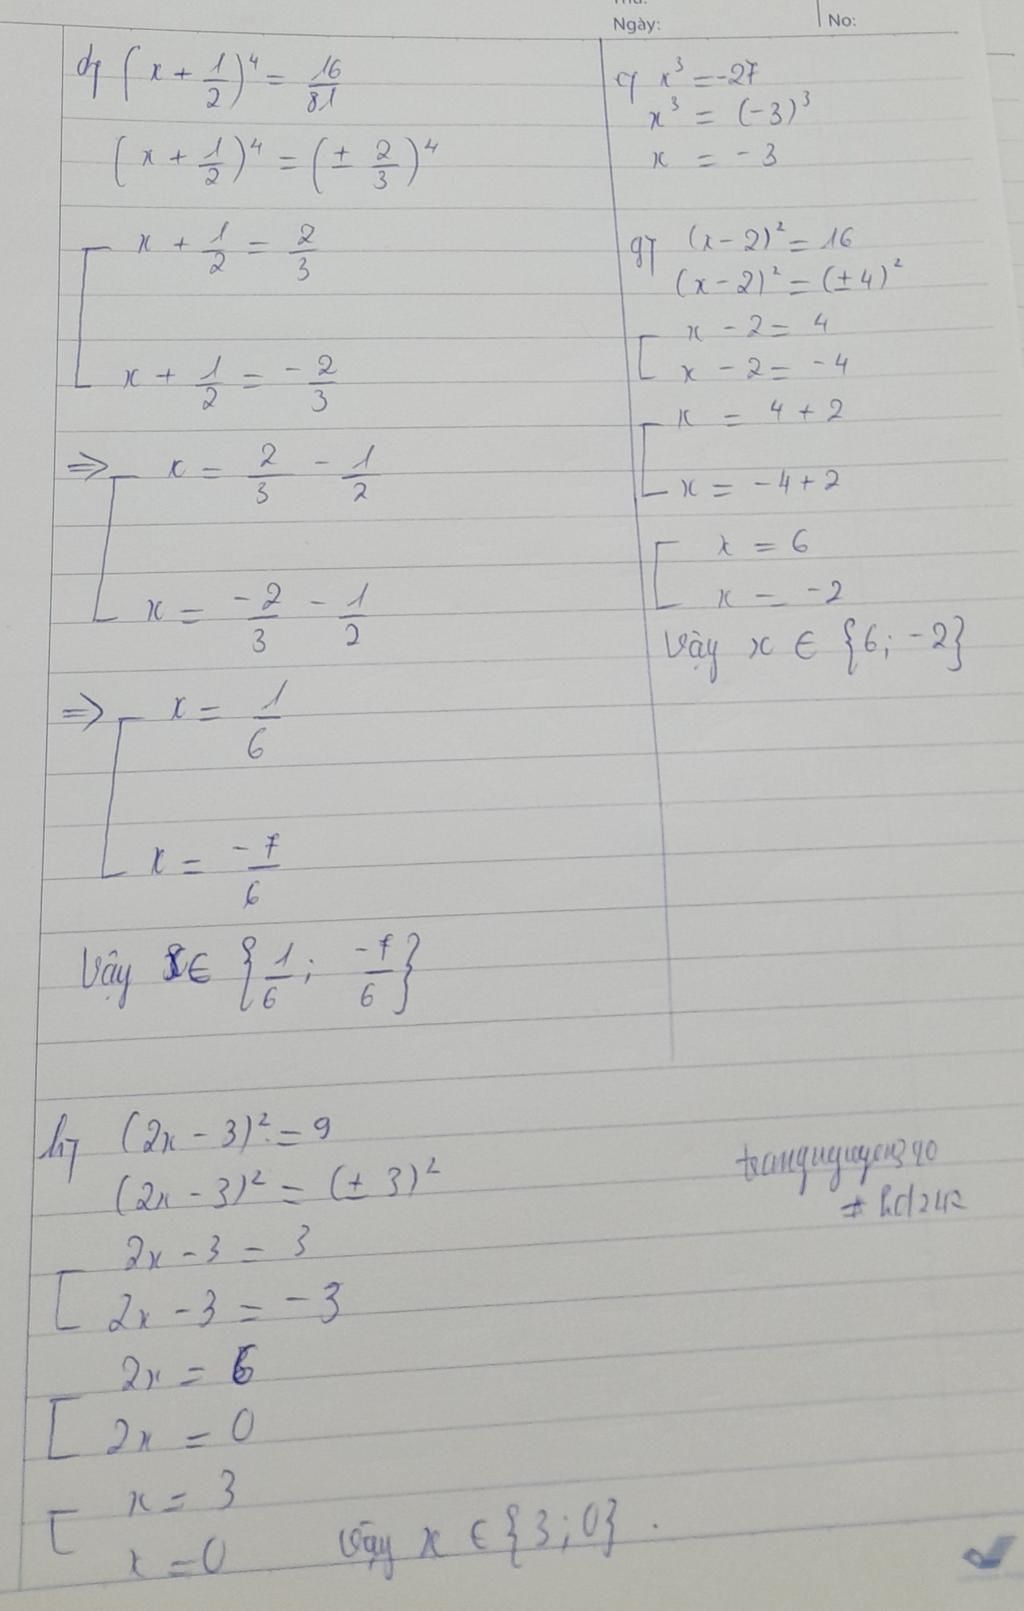 Ngày:
No:
d) (x + 1/2)⁴ = 16/81
(x + 1/2)⁴ = (± 2/3)⁴
[ x + 1/2 = 2/3
x + 1/2 = -2/3
⇒ [ x = 2/3 - 1/2
x = -2/3 - 1/2
⇒ [ x = 1/6
x = -7/6
Vậy x ∈ {1/6; -7/6}
c) x³ = -27
x³ = (-3)³
x = -3
g) (x - 2)² = 16
(x - 2)² = (± 4)²
[ x - 2 = 4
x - 2 = -4
[ x = 4 + 2
x = -4 + 2
[ x = 6
x = -2
Vậy x ∈ {6; -2}
h) (2x - 3)² = 9
(2x - 3)² = (± 3)²
[ 2x - 3 = 3
2x - 3 = -3
[ 2x = 6
2x = 0
[ x = 3
x = 0
Vậy x ∈ {3; 0}.